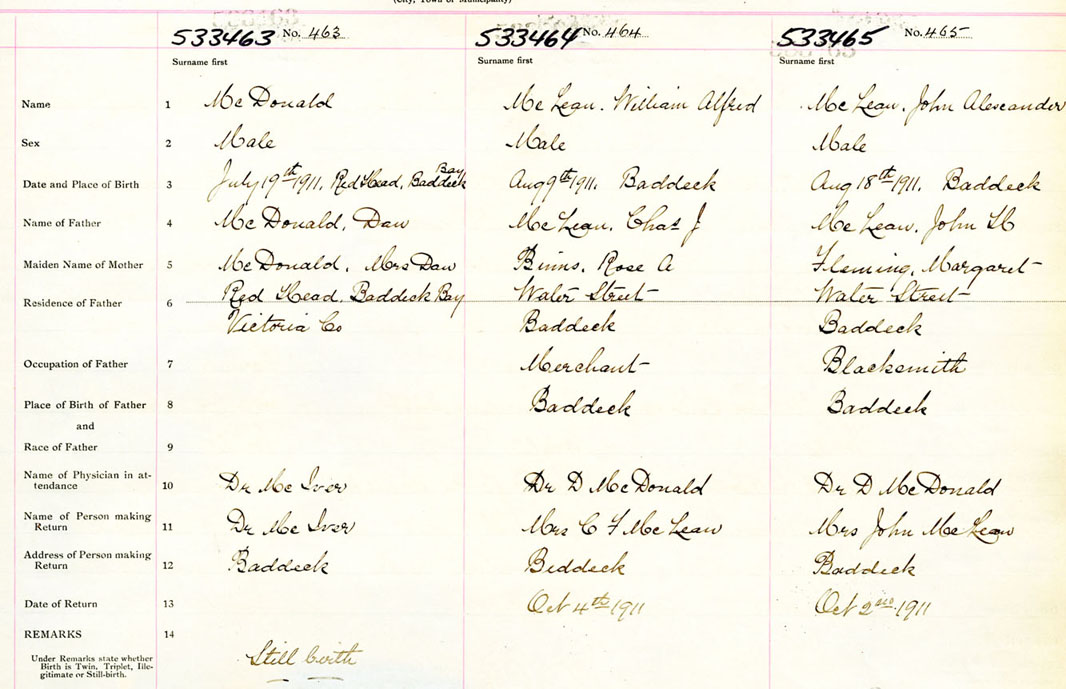 (City, Town or Municipality)
533463 No. 463 533464 No. 464 533465 No. 465
Surname first Surname first Surname first
Name 1 McDonald McLean. William Alfred McLean, John Alexcander
Sex 2 Male Male Male
Bay
Date and Place of Birth 3 July 19th 1911, Red Head, Baddeck Aug 9th 1911. Baddeck Aug 18th 1911. Baddeck
Name of Father 4 McDonald, Dan McLean, Chas J McLean, John H
Maiden Name of Mother 5 McDonald, Mrs Dan Binns, Rose A Fleming, Margaret
Residence of Father 6 Red Head, Baddeck Bay Water Street Water Street
Victoria Co Baddeck Baddeck
Occupation of Father 7 Merchant Blacksmith
Place of Birth of Father 8 Baddeck Baddeck
and
Race of Father 9
Name of Physician in at-
tendance 10 Dr McIver Dr D McDonald Dr D McDonald
Name of Person making
Return 11 Dr McIver Mrs C J McLean Mrs John McLean
Address of Person making
Return 12 Baddeck Beddeck Baddeck
Date of Return 13 Oct 4th 1911 Oct 2nd 1911
REMARKS 14
Under Remarks state whether
Birth is Twin, Triplet, Ille-
gitimate or Still-birth.
Still birth